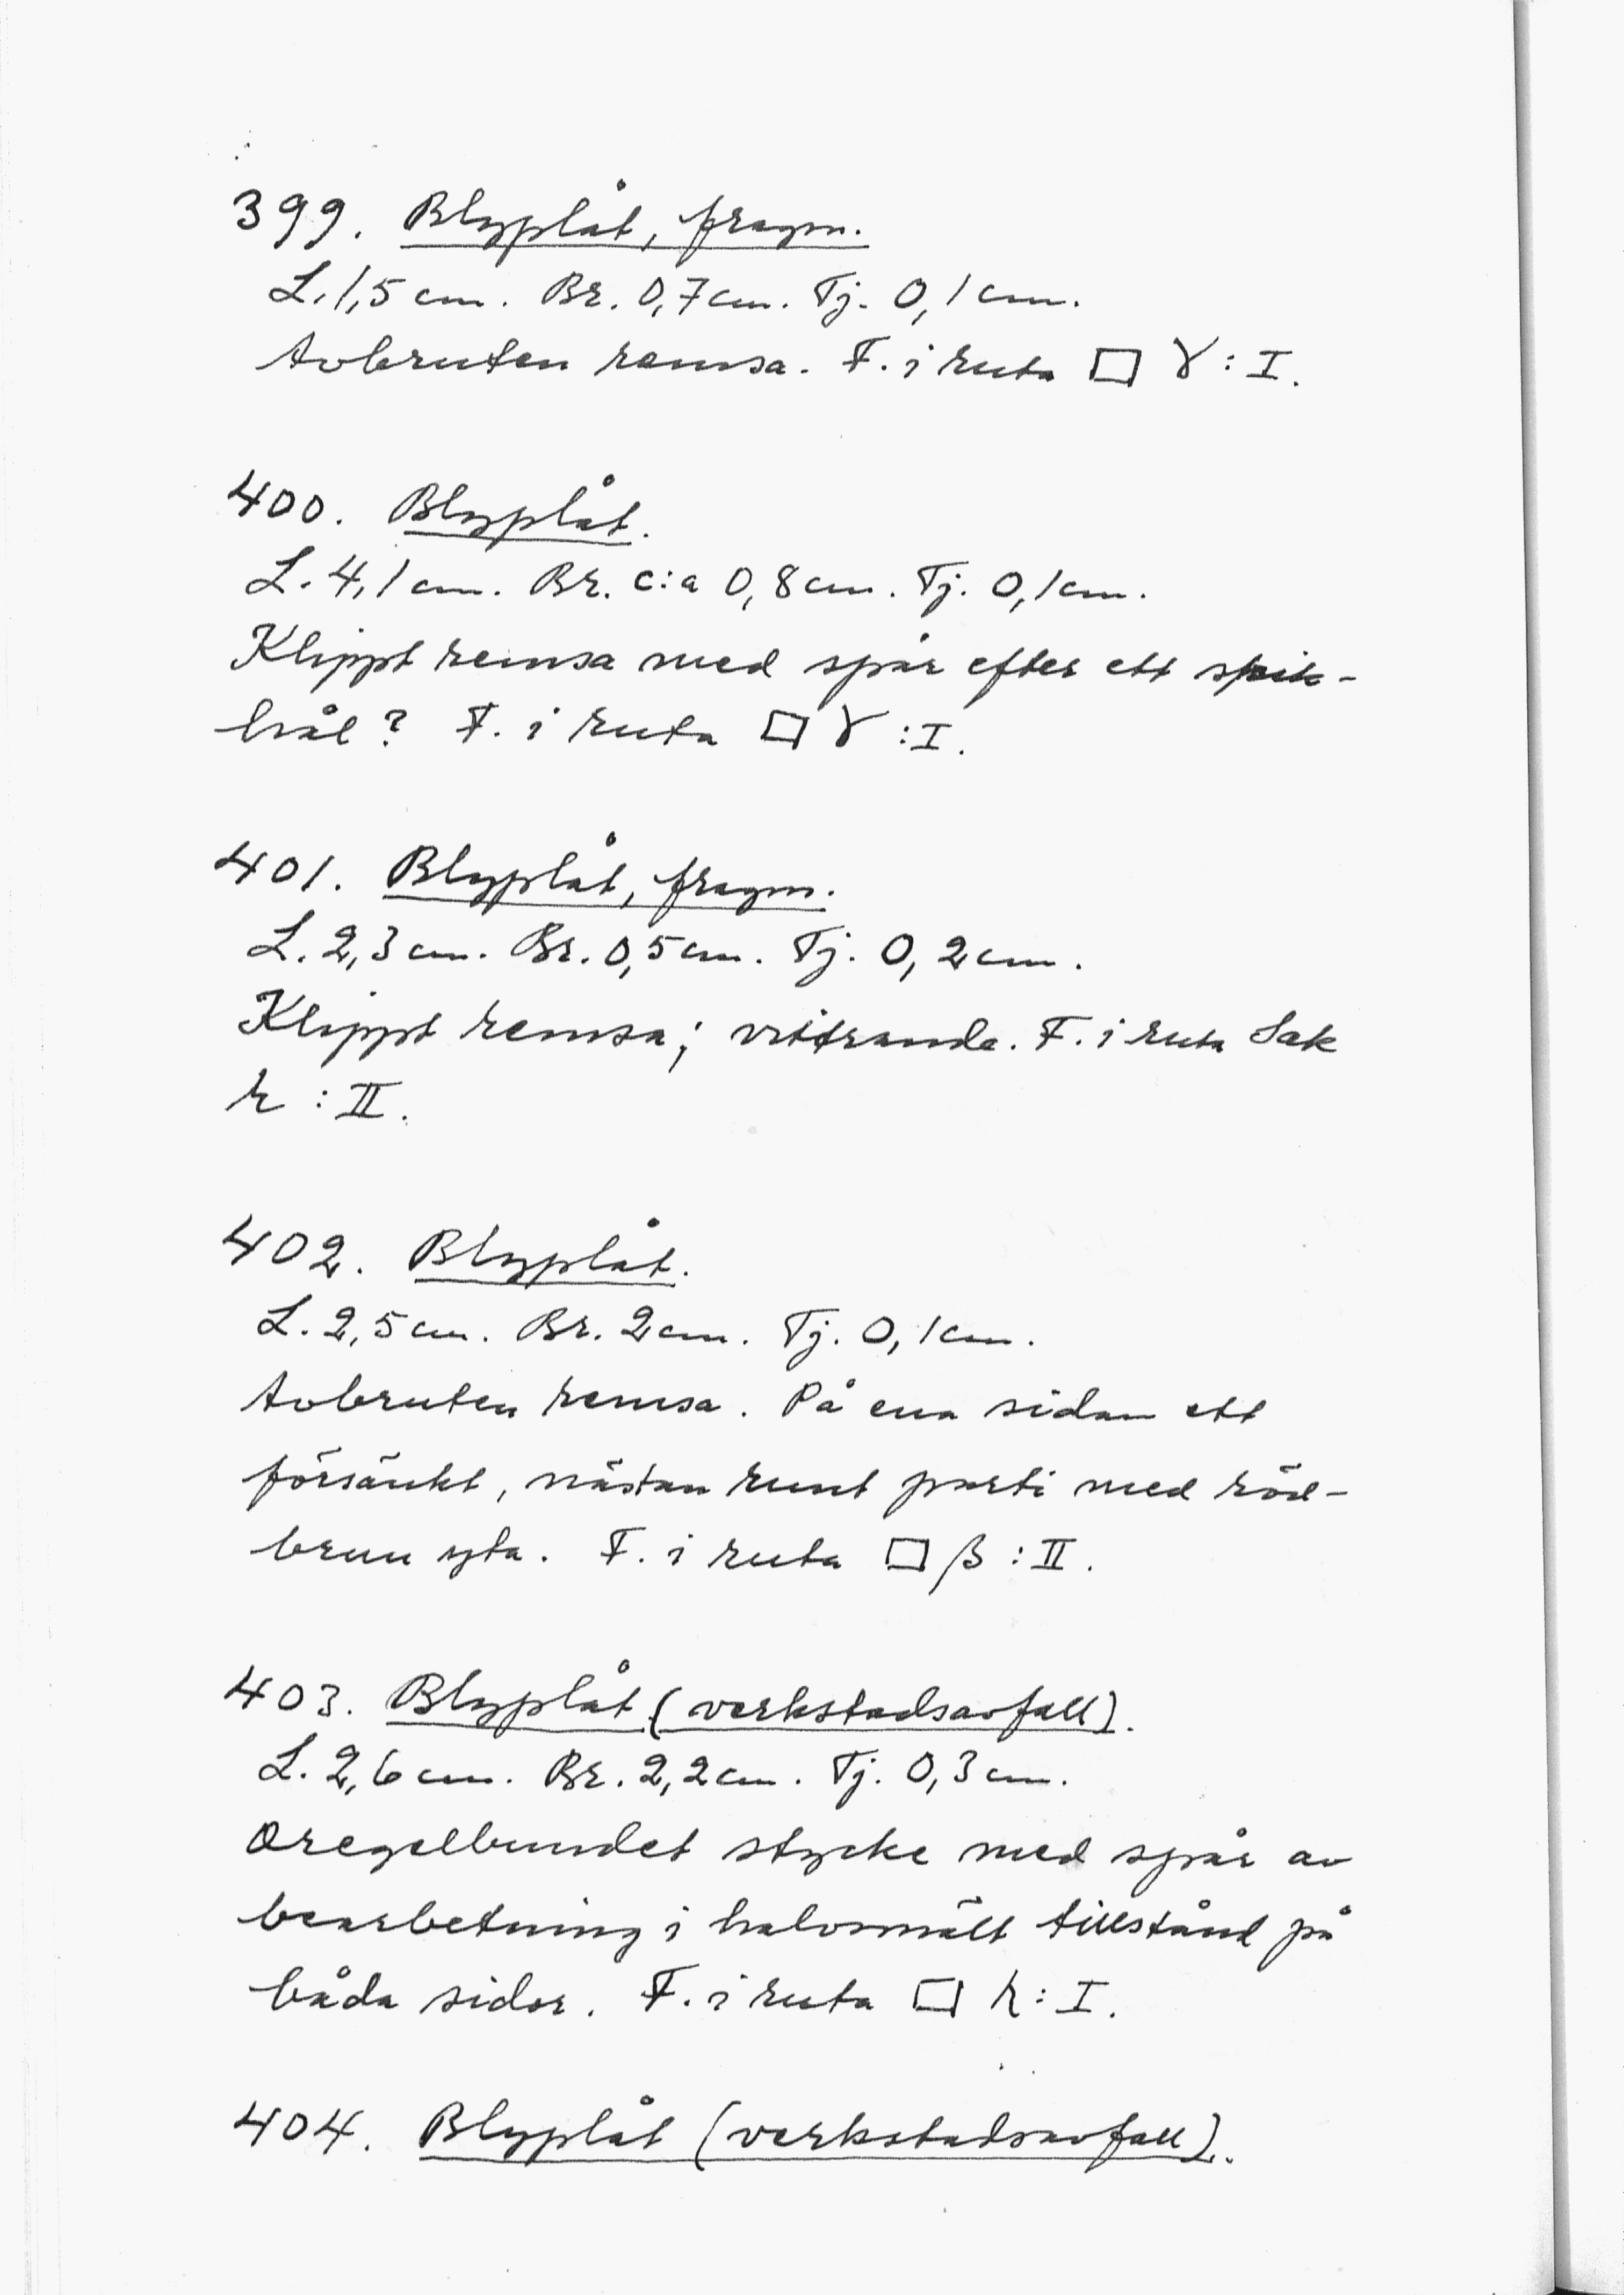 399. Blyplåt, fragm.
L. 1,5 cm. Br. 0,7 cm. Tj. 0,1 cm.
Avbruten remsa. F. i ruta □ γ : I.
400. Blyplåt.
L. 4,1 cm. Br. c:a 0,8 cm. Tj. 0,1 cm.
Klippt remsa med spår efter ett spik-
hål? F. i ruta □ γ : I.
401. Blyplåt, fragm.
L. 2,3 cm. Br. 0,5 cm. Tj. 0,2 cm.
Klippt remsa; vittrande. F. i ruta Sak
r : II.
402. Blyplåt.
L. 2,5 cm. Br. 2 cm. Tj. 0,1 cm.
Avbruten remsa. På ena sidan ett
försänkt, nästan runt parti med röd-
brun yta. F. i ruta □ β : II.
403. Blyplåt (verkstadsavfall).
L. 2,6 cm. Br. 2,2 cm. Tj. 0,3 cm.
Oregelbundet stycke med spår av
bearbetning i halvsmält tillstånd på
båda sidor. F. i ruta □ : I.
404. Blyplåt (verkstadsavfall).